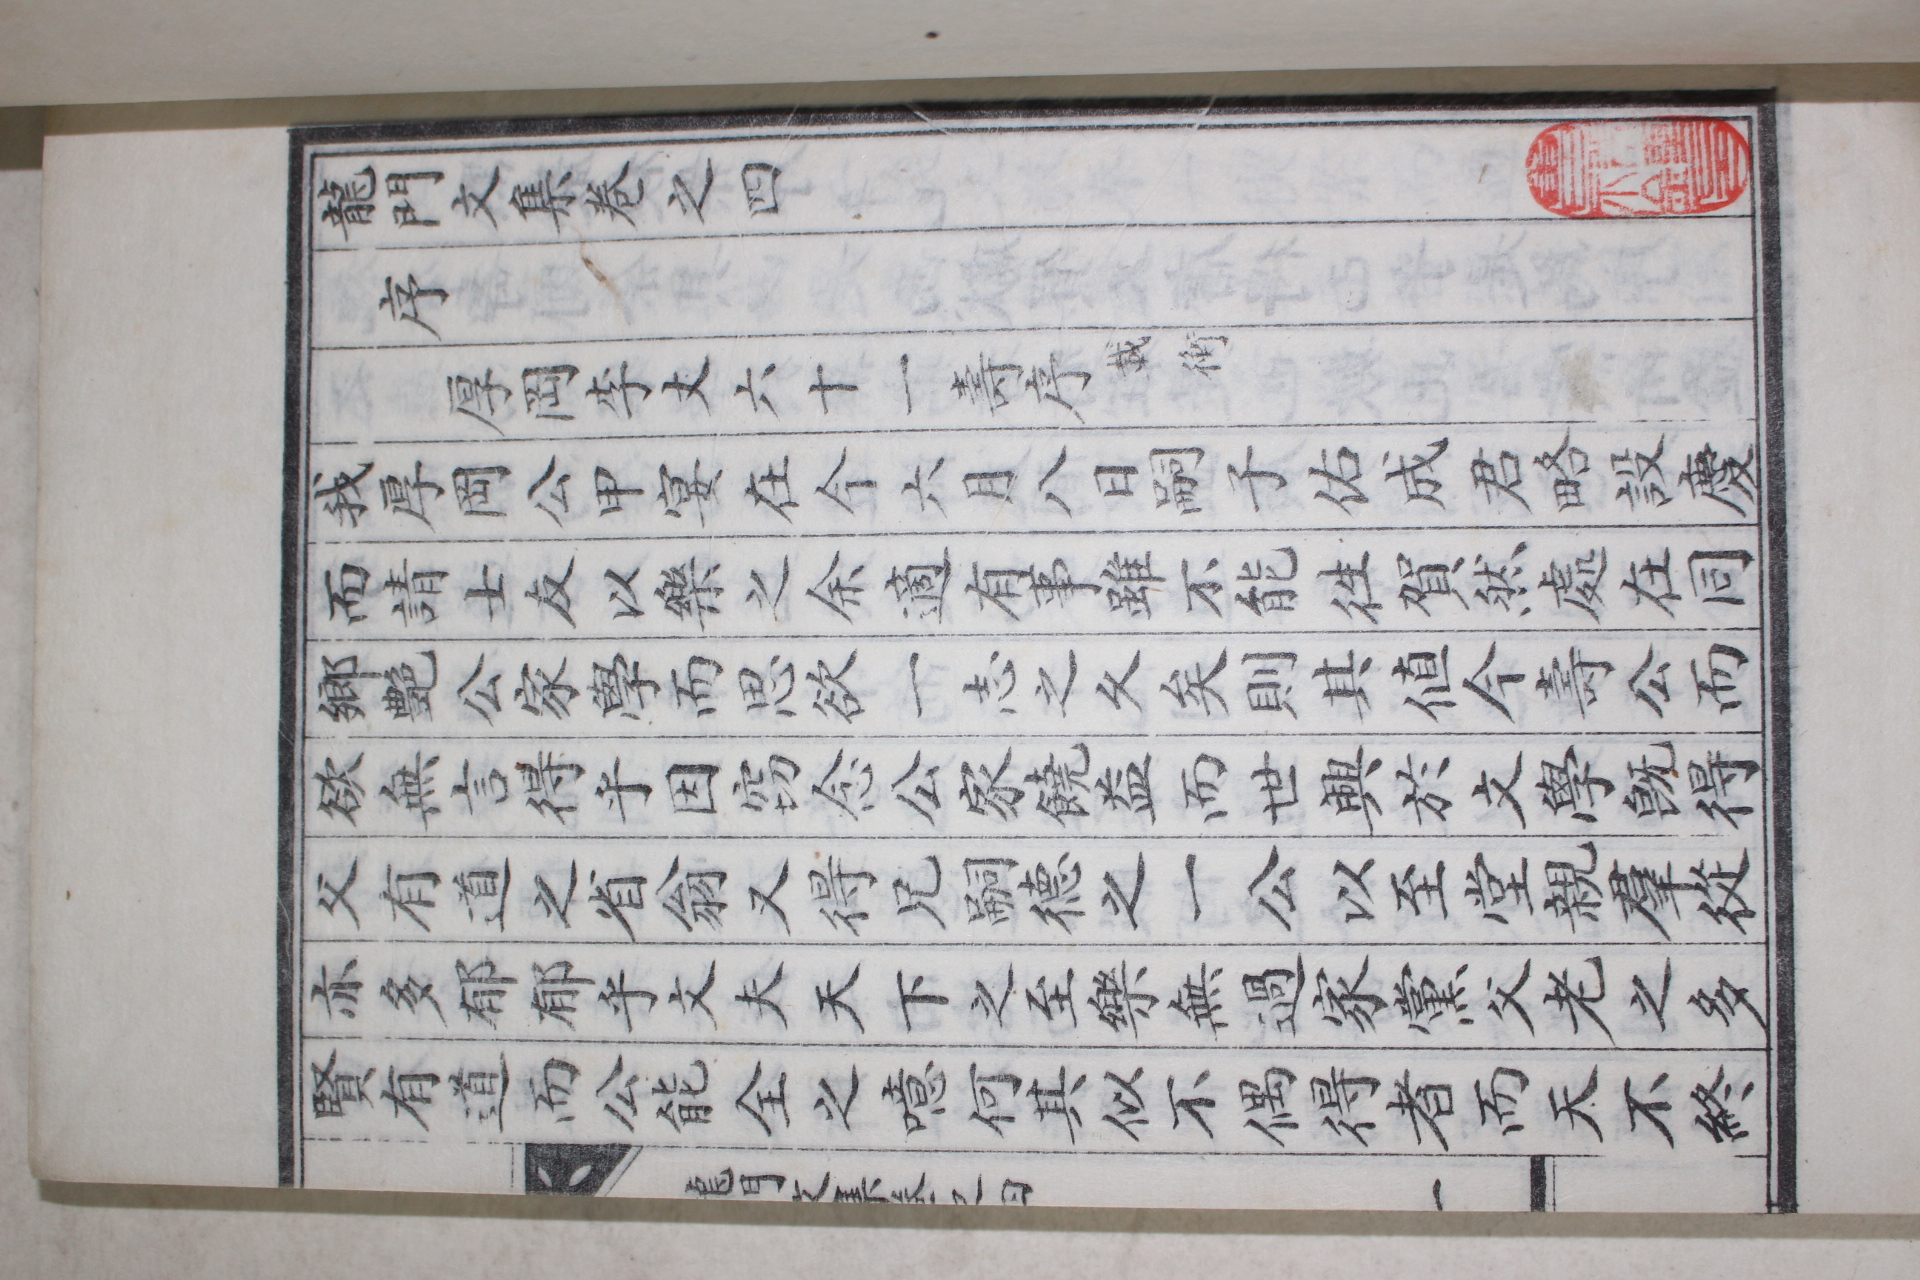 龍門文集卷之四
序
厚岡李丈六十一壽序
我厚岡公甲宴在今六月八日嗣子佑成君略設慶
而請士友以樂之余適有事雖不能往賀然處在同
鄉艶公家學而思欲一志之久矣則其値今壽公而
欲無言得乎因窃念公家饒益而世興於文學旣得
父有道之省翁又得兄嗣德之一公以至堂親羣從
亦多郁郁乎文夫天下之至樂無過家黨父老之多
賢有道而公能全之噫何其似不偶得者而天不終
一